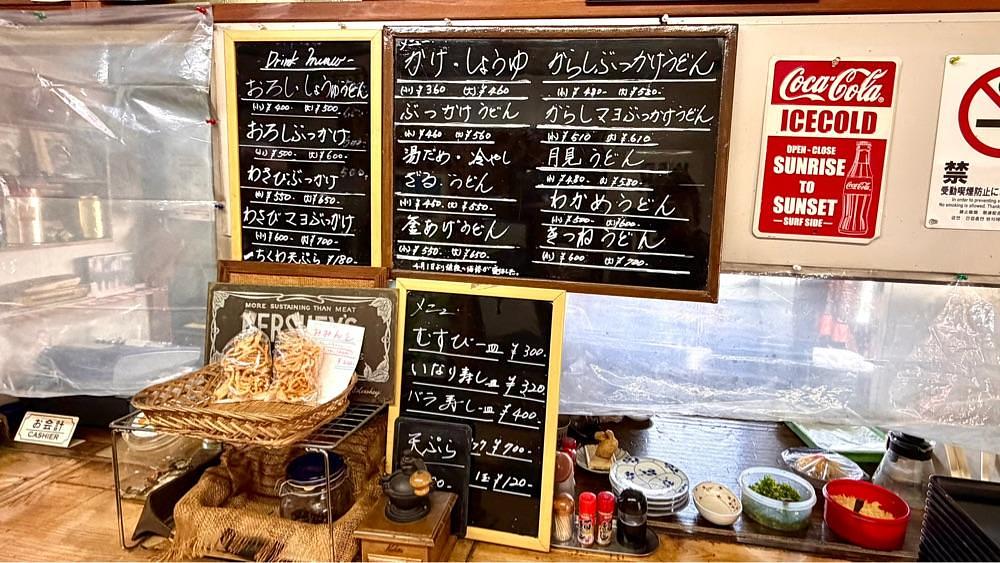 Drink menu
おろししょうゆうどん
(小)¥400- (大)¥500-
おろしぶっかけ
(小)¥500- (大)¥600-
わさびぶっかけ
(小)¥550- (大)¥650-
わさびマヨぶっかけ
(小)¥600- (大)¥700-
ちくわ天ぷら ¥180-
メニュー
かけ・しょうゆ
(小)¥360 (大)¥460
ぶっかけうどん
(小)¥460 (大)¥560
湯だめ・冷やし
ざるうどん
(小)¥450- (大)¥550-
釜あげうどん
(小)¥550- (大)¥650-
4月1日より
からしぶっかけうどん
(小)¥480- (大)¥580-
からしマヨぶっかけうどん
(小)¥510 (大)¥610
月見うどん
(小)¥480- (大)¥580-
わかめうどん
(小)¥500- (大)¥600-
きつねうどん
(小)¥600 (大)¥700-
Coca-Cola
ICECOLD
OPEN-CLOSE
SUNRISE
TO
SUNSET
SURF SIDE
Coca-Cola
禁
受動喫煙防止に
In order to preventing
No smoking is allowed. Thank
MORE SUSTAINING THAN MEAT
HERSHEY'S
メニュー
むすび一皿 ¥300-
いなり寿し一皿 ¥320
バラ寿し一皿 ¥400-
天ぷら
¥700-
¥120-
お会計
CASHIER